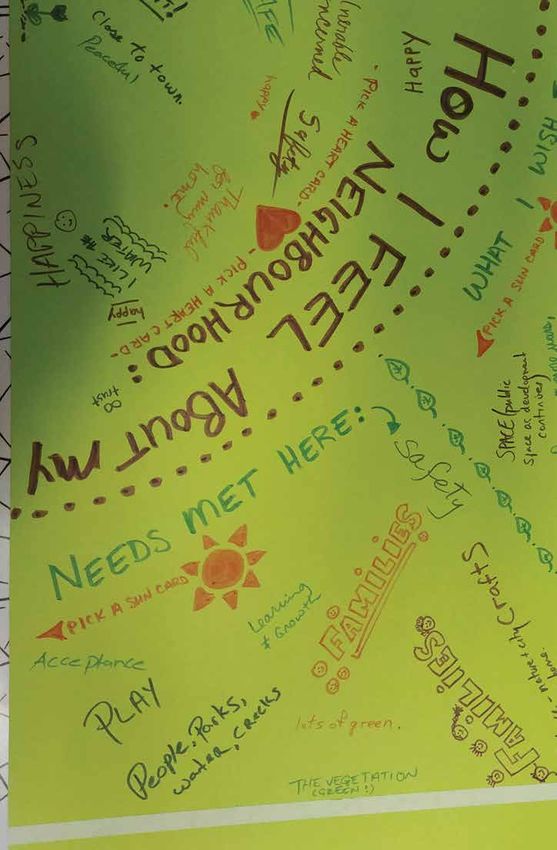 HOW I FEEL ABOUT MY
NEIGHBOURHOOD:
- PICK A HEART CARD -
- PICK A HEART CARD -
HAPPY
Safety
happy
Thankful
for my
home!
close to town.
Peaceful
HAPPINESS
I LIKE THE
WATER
happy!
trust
NEEDS MET HERE:
PICK A SUN CARD
safety
Learning
+ Growth
FAMILIES
Acceptance
PLAY
People, Parks,
water, creeks
lots of green.
THE VEGETATION
(GREEN!)
WHAT I WISH
PICK A SUN CARD
SPACE (public
space as development
continues)
Crafts
- nature + city
FAMILIES